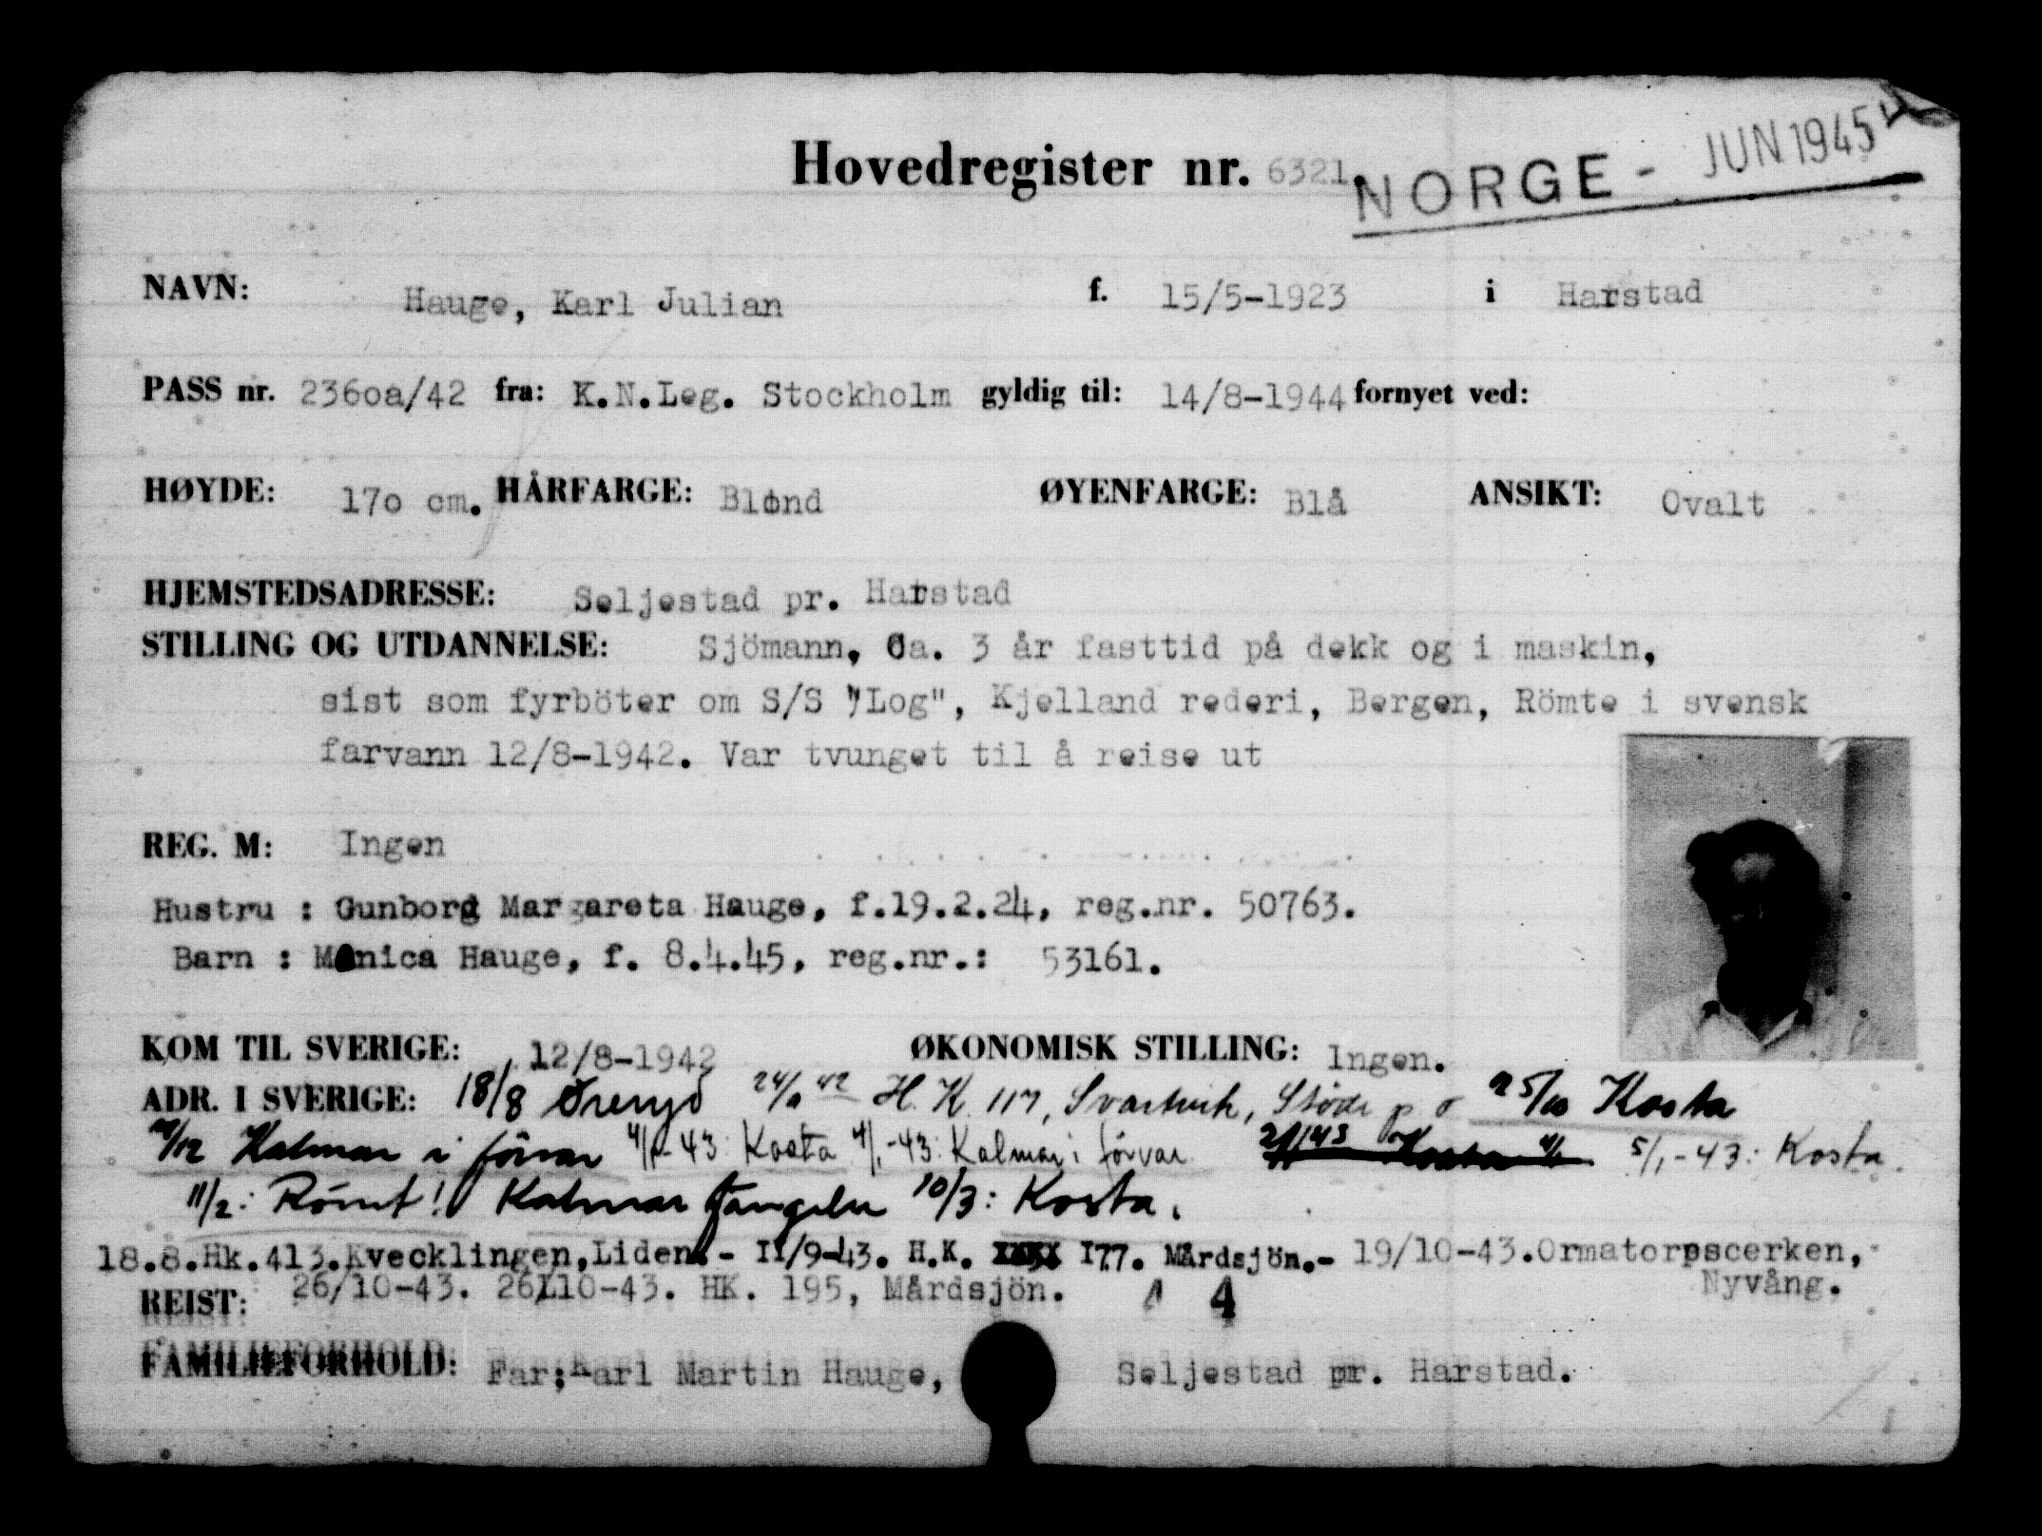 Hovedregister nr. 6321.
NORGE - JUN 1945
NAVN: Hauge, Karl Julian f. 15/5-1923 i Harstad
PASS nr. 2360a/42 fra: K.N.Leg. Stockholm gyldig til: 14/8-1944 fornyet ved:
HØYDE: 170 cm. HÅRFARGE: Blond ØYENFARGE: Blå ANSIKT: Ovalt
HJEMSTEDSADRESSE: Seljestad pr. Harstad
STILLING OG UTDANNELSE: Sjömann, Ca. 3 år fasttid på dekk og i maskin,
sist som fyrböter om S/S "Log", Kjelland rederi, Bergen, Römte i svensk
farvann 12/8-1942. Var tvunget til å reise ut
REG. M: Ingen
Hustru : Gunborg Margareta Hauge, f.19.2.24, reg.nr. 50763.
Barn : Monica Hauge, f. 8.4.45, reg.nr.: 53161.
KOM TIL SVERIGE: 12/8-1942 ØKONOMISK STILLING: Ingen.
ADR. I SVERIGE: 18/8 Øreryd H.K. 117, Svartvik, Stöde 25/10 Kosta
Kalmar i förvar 43: Kosta 4/1-43: Kalmar i förvar 5/1-43: Kosta.
11/2: Römt! Kalmar fängelse 10/3: Kosta.
18.8.Hk.413.Kvecklingen,Liden. - 11/9-43. H.K. 177. Mårdsjön.- 19/10-43.Ormatorpscerken,
Nyvång.
REIST: 26/10-43. 26/10-43. HK. 195, Mårdsjön. 4
FAMILIEFORHOLD: Far: Karl Martin Hauge, Seljestad pr. Harstad.